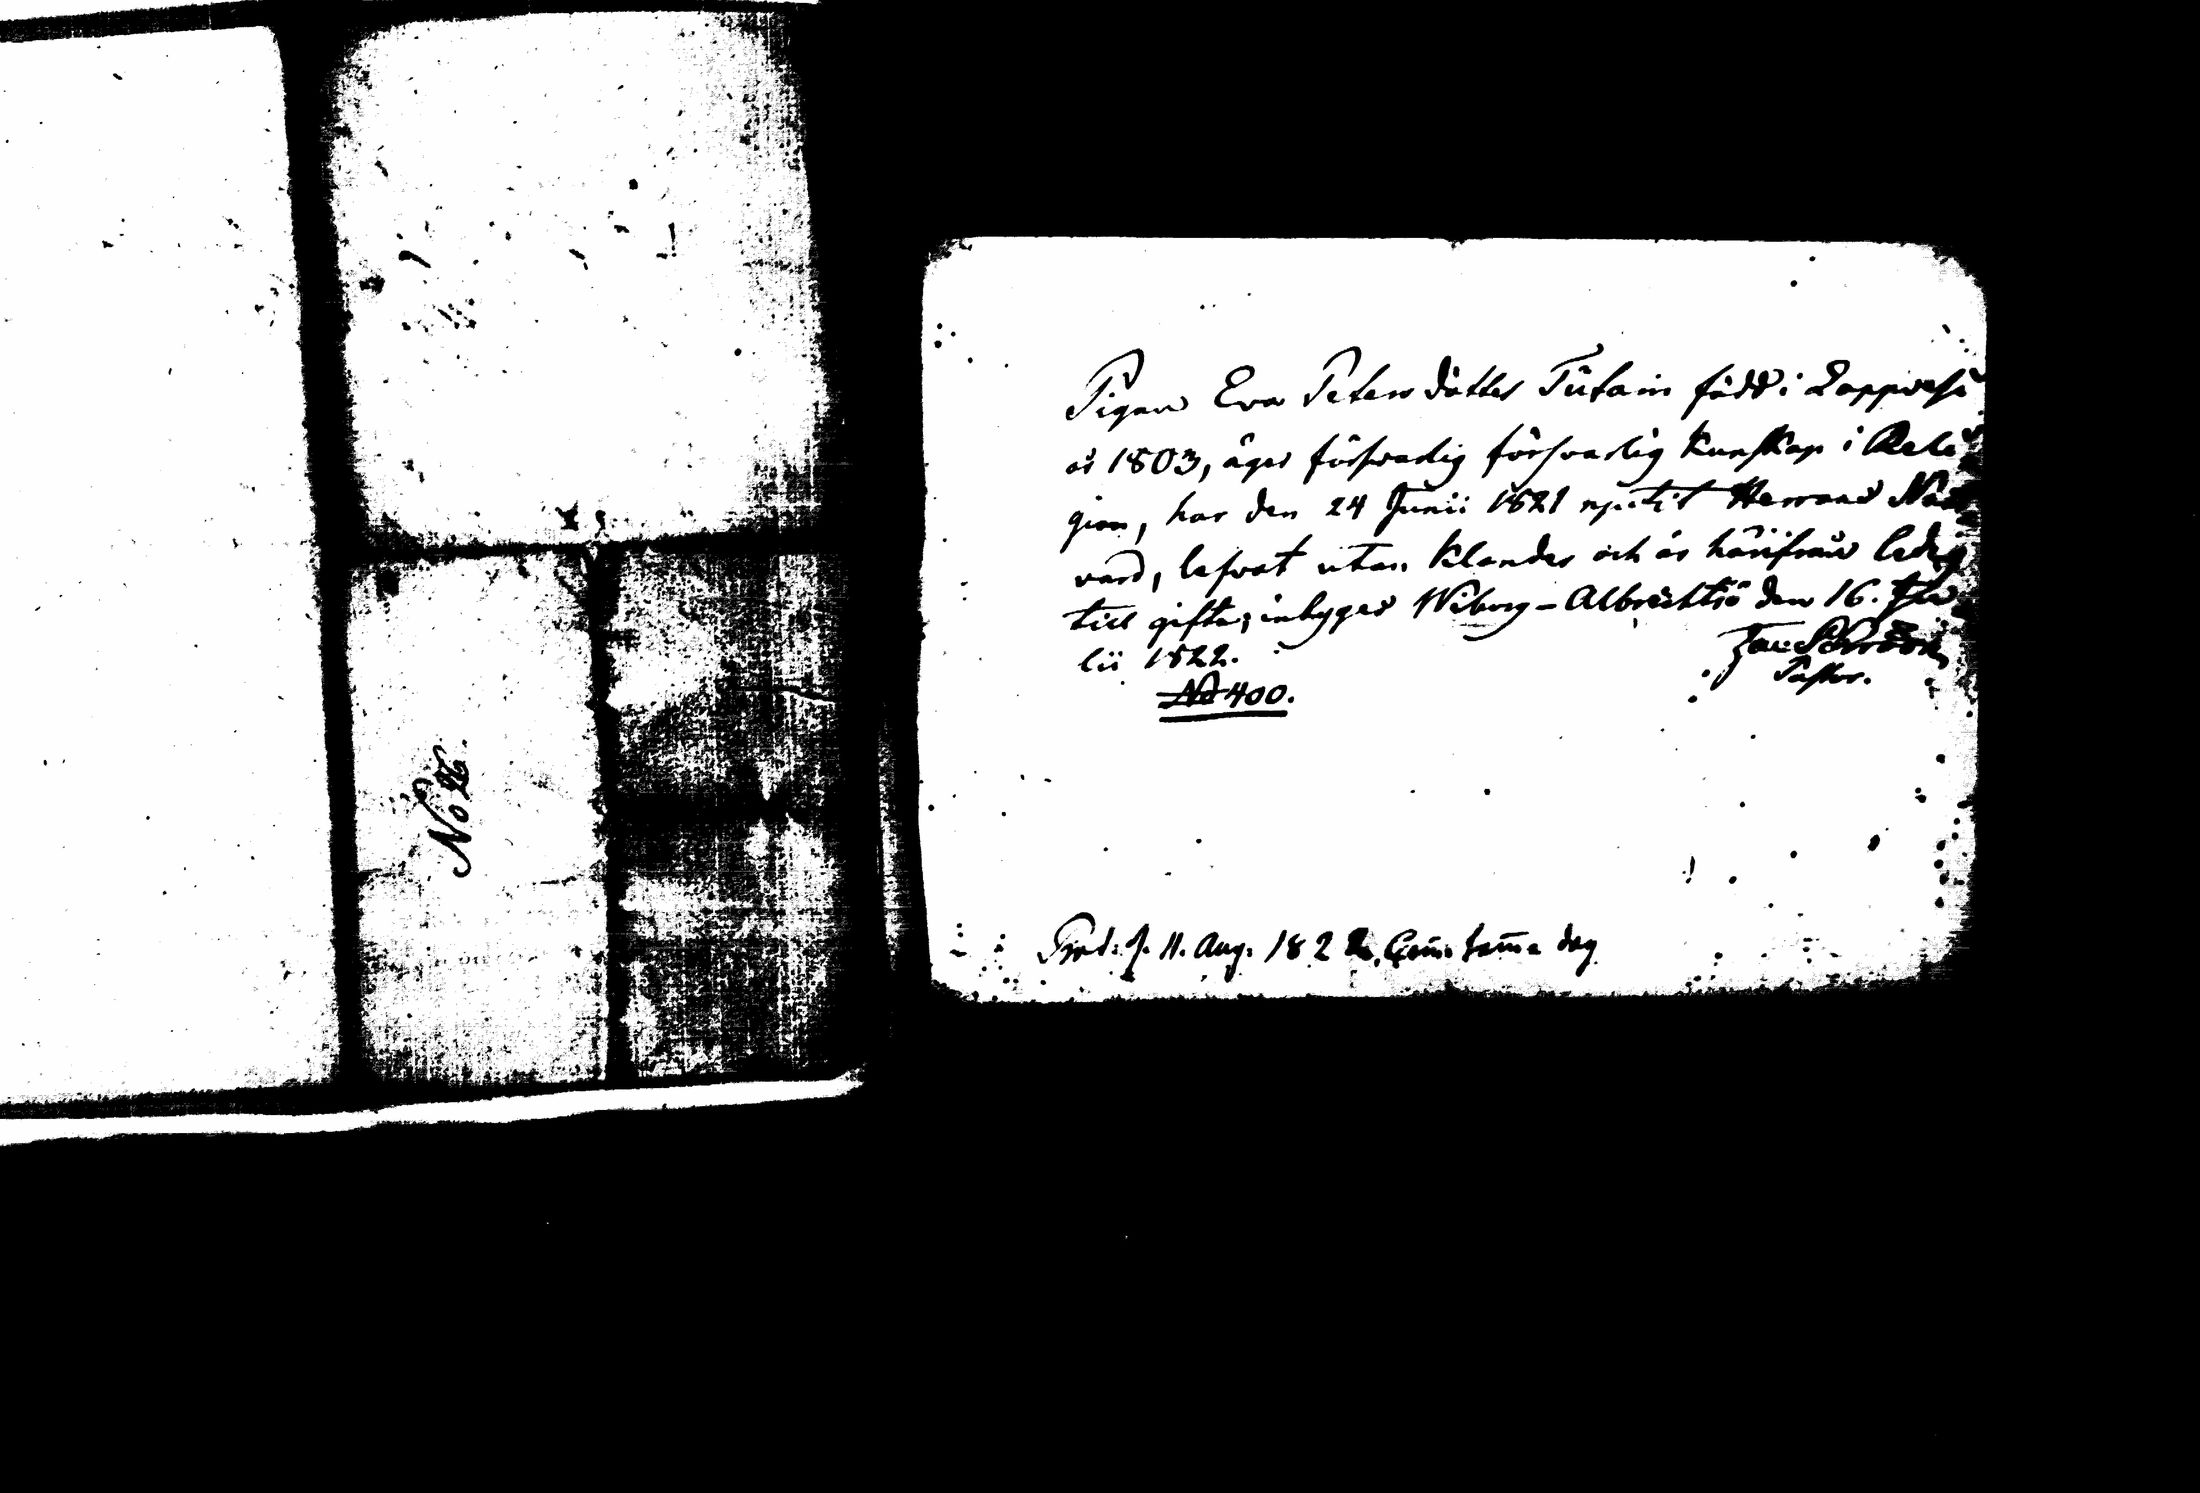 No 26.
Pigan Eva Petersdotter Tütain född i Lappvesi
år 1803, äger försvarlig försvarlig kunskap i Reli
gion, har den 24 Junii 1821 njutit Herrans Natt
vard, lefvat utan klander och är härifrån ledig
till gifte; intygar Wiborg-Albrechtsö den 16. Ju
lii 1822.
Pastor.
No 400.
Prod: d. 11. Aug. 1822, samma dag